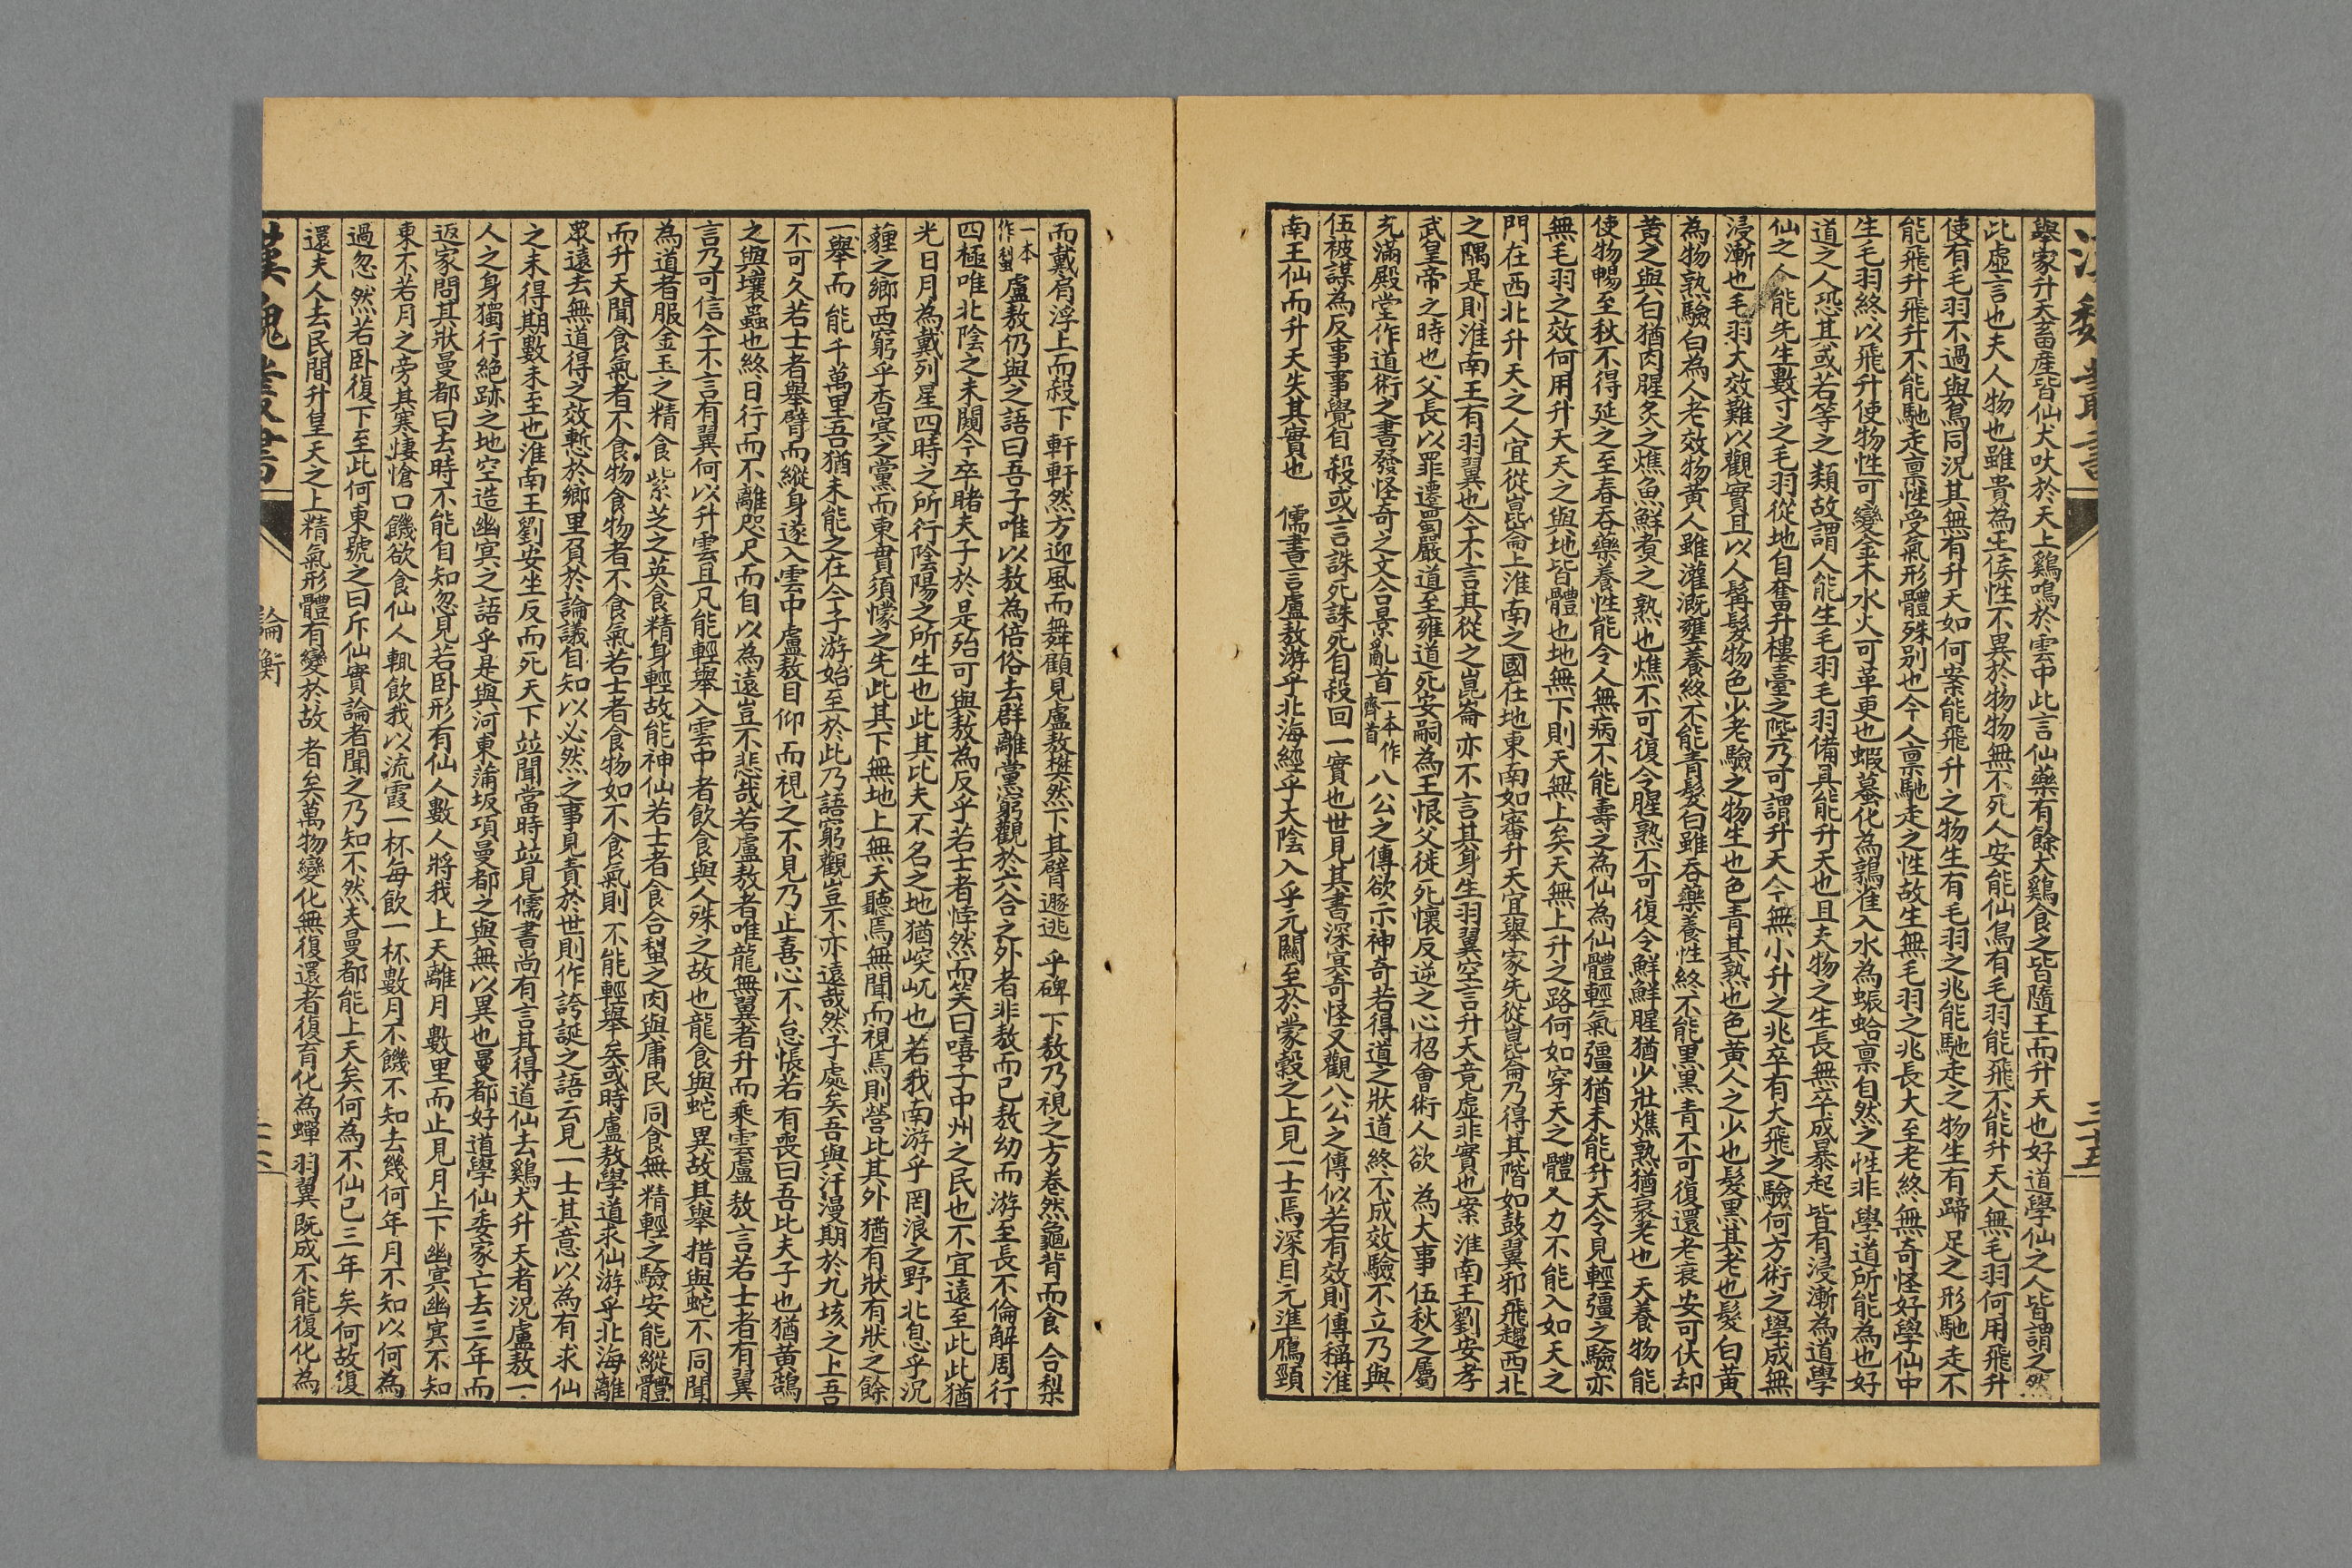 漢魏叢書
三十五
舉家升天畜產皆仙犬吠於天上鷄鳴於雲中此言仙藥有餘犬鷄食之皆隨王而升天也好道學仙之人皆謂之然
此虛言也夫人物也雖貴為王侯性不異於物物無不死人安能仙鳥有毛羽能飛不能升天人無毛羽何用飛升
使有毛羽不過與鳥同況其無有升天如何案能飛升之物生有毛羽之兆能馳走之物生有蹄足之形馳走不
能飛升飛升不能馳走稟性受氣形體殊别也今人稟馳走之性故生無毛羽之兆長大至老終無奇怪好學仙中
生毛羽終以飛升使物性可變金木水火可革更也蝦蟇化為鶉雀入水為蜄蛤稟自然之性非學道所能為也好
道之人恐其或若等之類故謂人能生毛羽毛羽備具能升天也且夫物之生長無卒成暴起皆有浸漸為道學
仙之人能先生數寸之毛羽從地自奮升樓臺之陛乃可謂升天今無小升之兆卒有大飛之驗何方術之學成無
浸漸也毛羽大效難以觀實且以人髯髮物色少老驗之物生也色青其熟也色黄人之少也髮黑其老也髮白黄
為物熟驗白為人老效物黄人雖灌溉壅養終不能青髮白雖吞藥養性終不能黑黑青不可復還老衰安可伏却
黄之與白猶肉腥炙之燋魚鮮煑之熟也燋不可復令腥熟不可復令鮮鮮腥猶少壯燋熟猶衰老也天養物能
使物暢至秋不得延之至春吞藥養性能令人無病不能壽之為仙為仙體輕氣彊猶未能升天令見輕彊之驗亦
無毛羽之效何用升天天之與地皆體也地無下則天無上矣天無上升之路何如穿天之體人力不能入如天之
門在西北升天之人宜從崑崙上淮南之國在地東南如審升天宜舉家先從崑崙乃得其階如鼓翼邪飛趨西北
之隅是則淮南王有羽翼也今不言其從之崑崙亦不言其身生羽翼空言升天竟虛非實也案淮南王劉安孝
武皇帝之時也父長以罪遷蜀嚴道至雍道死安嗣為王恨父徙死懷反逆之心招會術人欲為大事伍秋之屬
充滿殿堂作道術之書發怪奇之文合景亂首一本作齊首八公之傳欲示神奇若得道之狀道終不成效驗不立乃與
伍被謀為反事事覺自殺或言誅死誅死自殺回一實也世見其書深冥奇怪又觀八公之傳似若有效則傳稱淮
南王仙而升天失其實也　儒書言盧敖游乎北海經乎太陰入乎元關至於蒙穀之上見一士焉深目元準鴈頸
而戴肩浮上而殺下軒軒然方迎風而舞顧見盧敖樊然下其臂遯逃乎碑下敖乃視之方卷然龜背而食合梨
一本作蜊盧敖仍與之語曰吾子唯以敖為倍俗去群離黨窮觀於六合之外者非敖而已敖幼而游至長不倫解周行
四極唯北陰之未闚今卒睹夫子於是殆可與敖為反乎若士者悖然而笑曰嘻子中州之民也不宜遠至此此猶
光日月為戴列星四時之所行陰陽之所生也此其比夫不名之地猶㟮屼也若我南游乎罔浪之野北息乎沉
薶之鄉西窮乎杳冥之黨而東貫須懞之先此其下無地上無天聽焉無聞而視焉則營比其外猶有狀有狀之餘
一舉而能千萬里吾猶未能之在今子游始至於此乃語窮觀豈不亦遠哉然子處矣吾與汗漫期於九垓之上吾
不可久若士者舉臂而縱身遂入雲中盧敖目仰而視之不見乃止喜心不怠悵若有喪曰吾比夫子也猶黄鵠
之與壤蟲也終日行而不離咫尺而自以為遠豈不悲哉若盧敖者唯龍無翼者升而乘雲盧敖言若士者有翼
言乃可信今不言有翼何以升雲且凡能輕舉入雲中者飲食與人殊之故也龍食與蛇異故其舉措與蛇不同聞
為道者服金玉之精食紫芝之英食精身輕故能神仙若士者食合蜊之肉與庸民同食無精輕之驗安能縱體
而升天聞食氣者不食物食物者不食氣若士者食物如不食氣則不能輕舉矣或時盧敖學道求仙游乎北海離
眾遠去無道得之效慙於鄉里負於論議自知以必然之事見責於世則作誇誕之語云見一士其意以為有求仙
之未得期數未至也淮南王劉安坐反而死天下竝聞當時竝見儒書尚有言其得道仙去鷄犬升天者況盧敖一
人之身獨行絕跡之地空造幽冥之語乎是與河東蒲坂項曼都之與無以異也曼都好道學仙委家亡去三年而
返家問其狀曼都曰去時不能自知忽見若卧形有仙人數人將我上天離月數里而止見月上下幽冥幽冥不知
東不若月之旁其寒悽愴口饑欲食仙人輒飲我以流霞一杯每飲一杯數月不饑不知去幾何年月不知以何為
過忽然若卧復下至此何東號之曰斥仙實論者聞之乃知不然夫曼都能上天矣何為不仙已三年矣何故復
還夫人去民間升皇天之上精氣形體有變於故者矣萬物變化無復還者復育化為蟬羽翼既成不能復化為
漢魏叢書
論衡